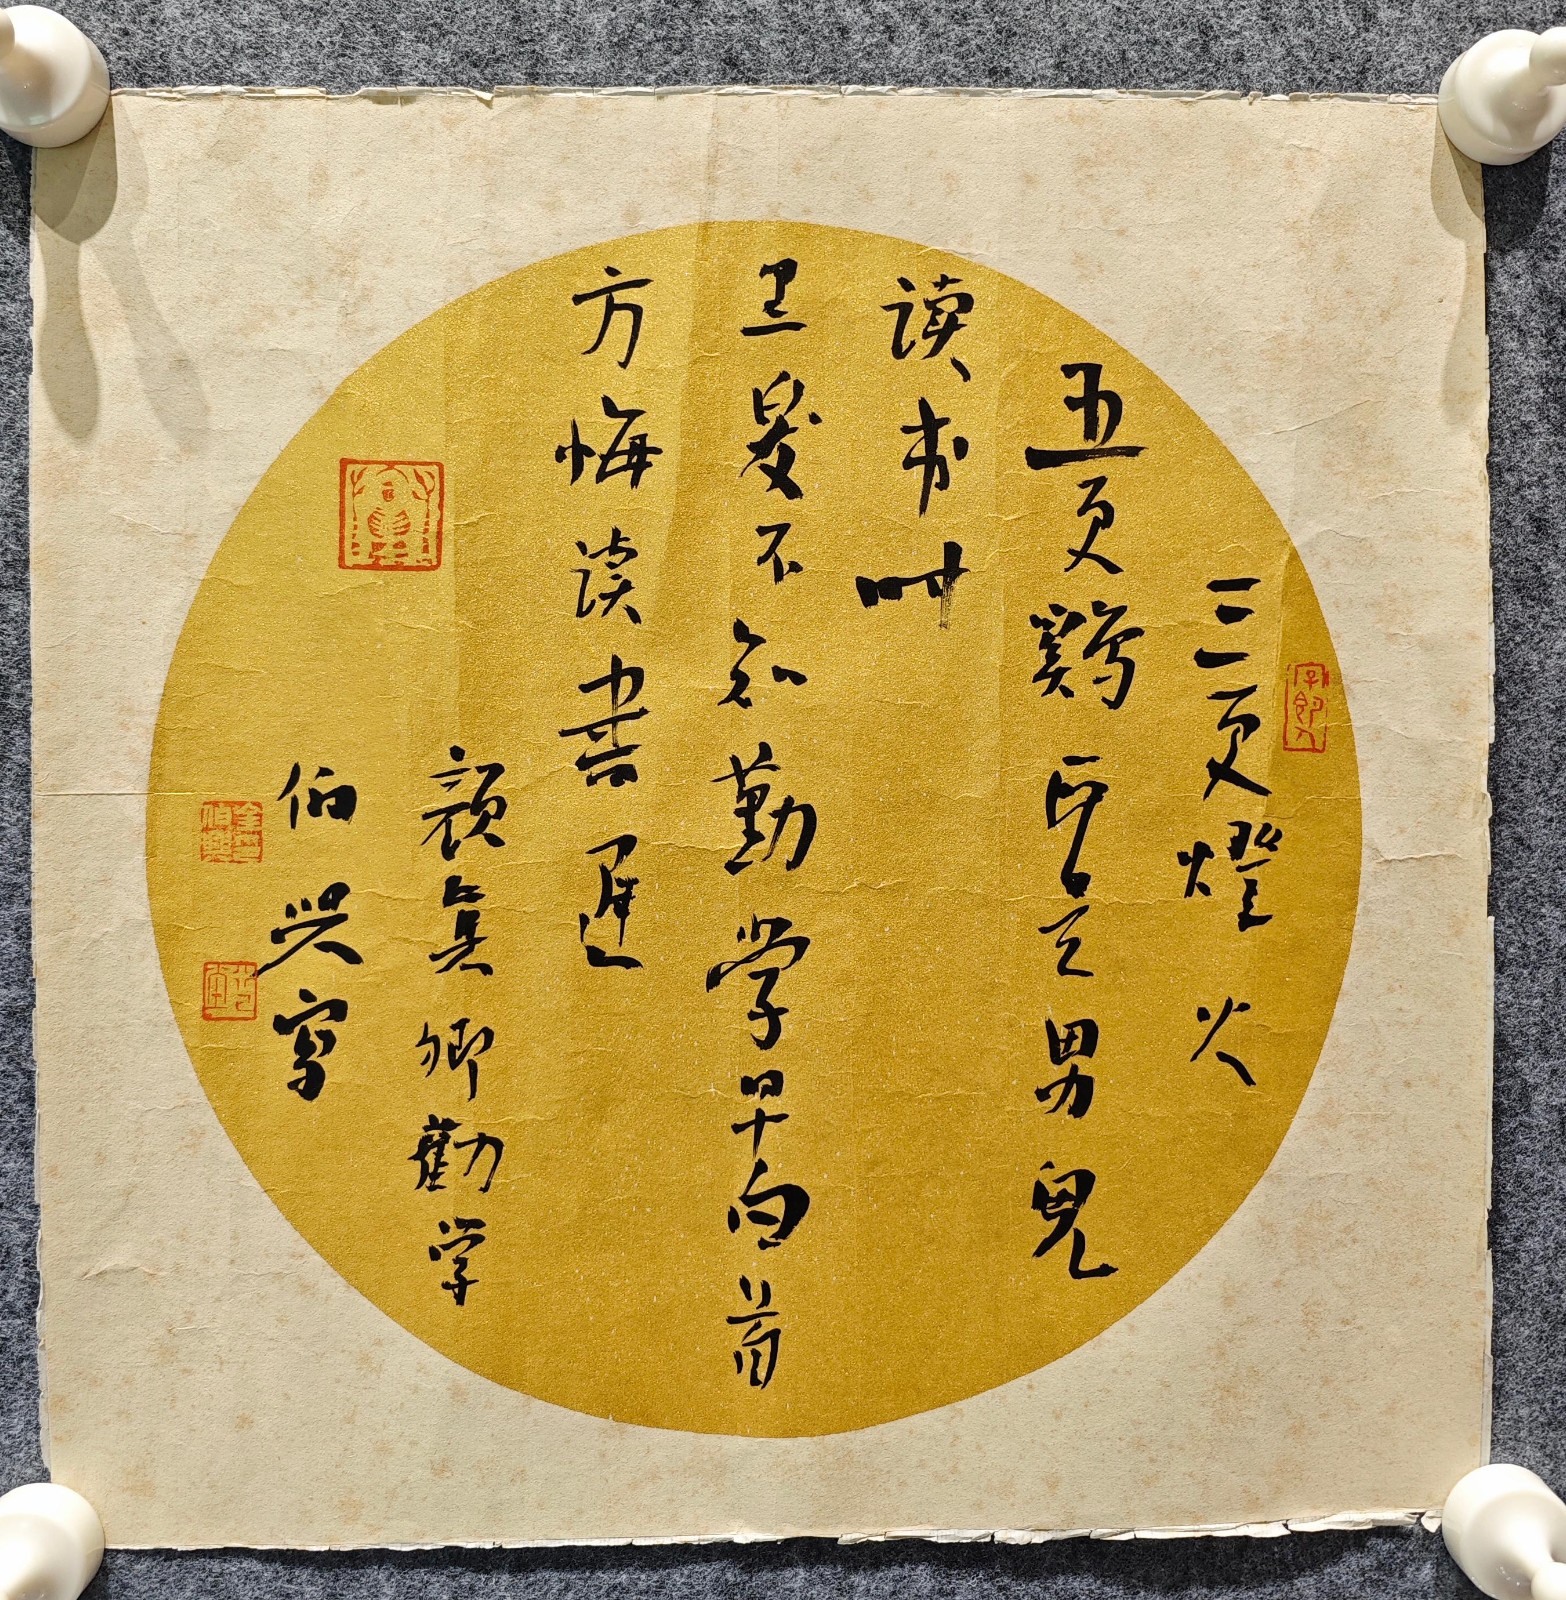 三更燈火
五更鷄正是男兒
读书时
黑发不知勤学早白首
方悔读書遲
顔真卿勸学
伯兴寫